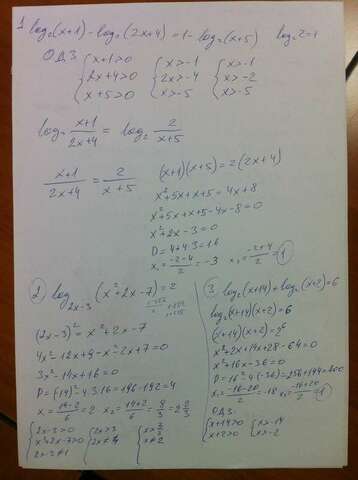 1 log₂(x+1) - log₂(2x+4) = 1 - log₂(x+5)   log₂2=1
О.Д.З. { x+1>0   { x>-1   { x>-1
2x+4>0   2x>-4   x>-2
x+5>0   x>-5   x>-5
log₂ (x+1)/(2x+4) = log₂ 2/(x+5)
(x+1)/(2x+4) = 2/(x+5)   (x+1)(x+5)=2(2x+4)
x²+5x+x+5=4x+8
x²+5x+x+5-4x-8=0
x²+2x-3=0
D=4+4·3=16
x₁=(-2-4)/2=-3   x₂=(-2+4)/2=1
2 log_{2x-3}(x²+2x-7)=2
(2x-3)²=x²+2x-7
4x²-12x+9-x²-2x+7=0
3x²-14x+16=0
D=(-14)²-4·3·16=196-192=4
x₁=(14-2)/6=2   x₂=(14+2)/6=8/3=2 2/3
{ 2x-3>0   { 2x>3   { x>3/2
x²+2x-7>0   2x≠4   x≠2
2x-3≠1
3. log₂(x+14)+log₂(x+2)=6
log₂(x+14)(x+2)=6
(x+14)(x+2)=2⁶
x²+2x+14x+28-64=0
x²+16x-36=0
D=16²-4·(-36)=256+144=400
x₁=(-16-20)/2=-18   x₂=(-16+20)/2=
О.Д.З:
{ x+14>0   { x>-14
x+2>0   x>-2